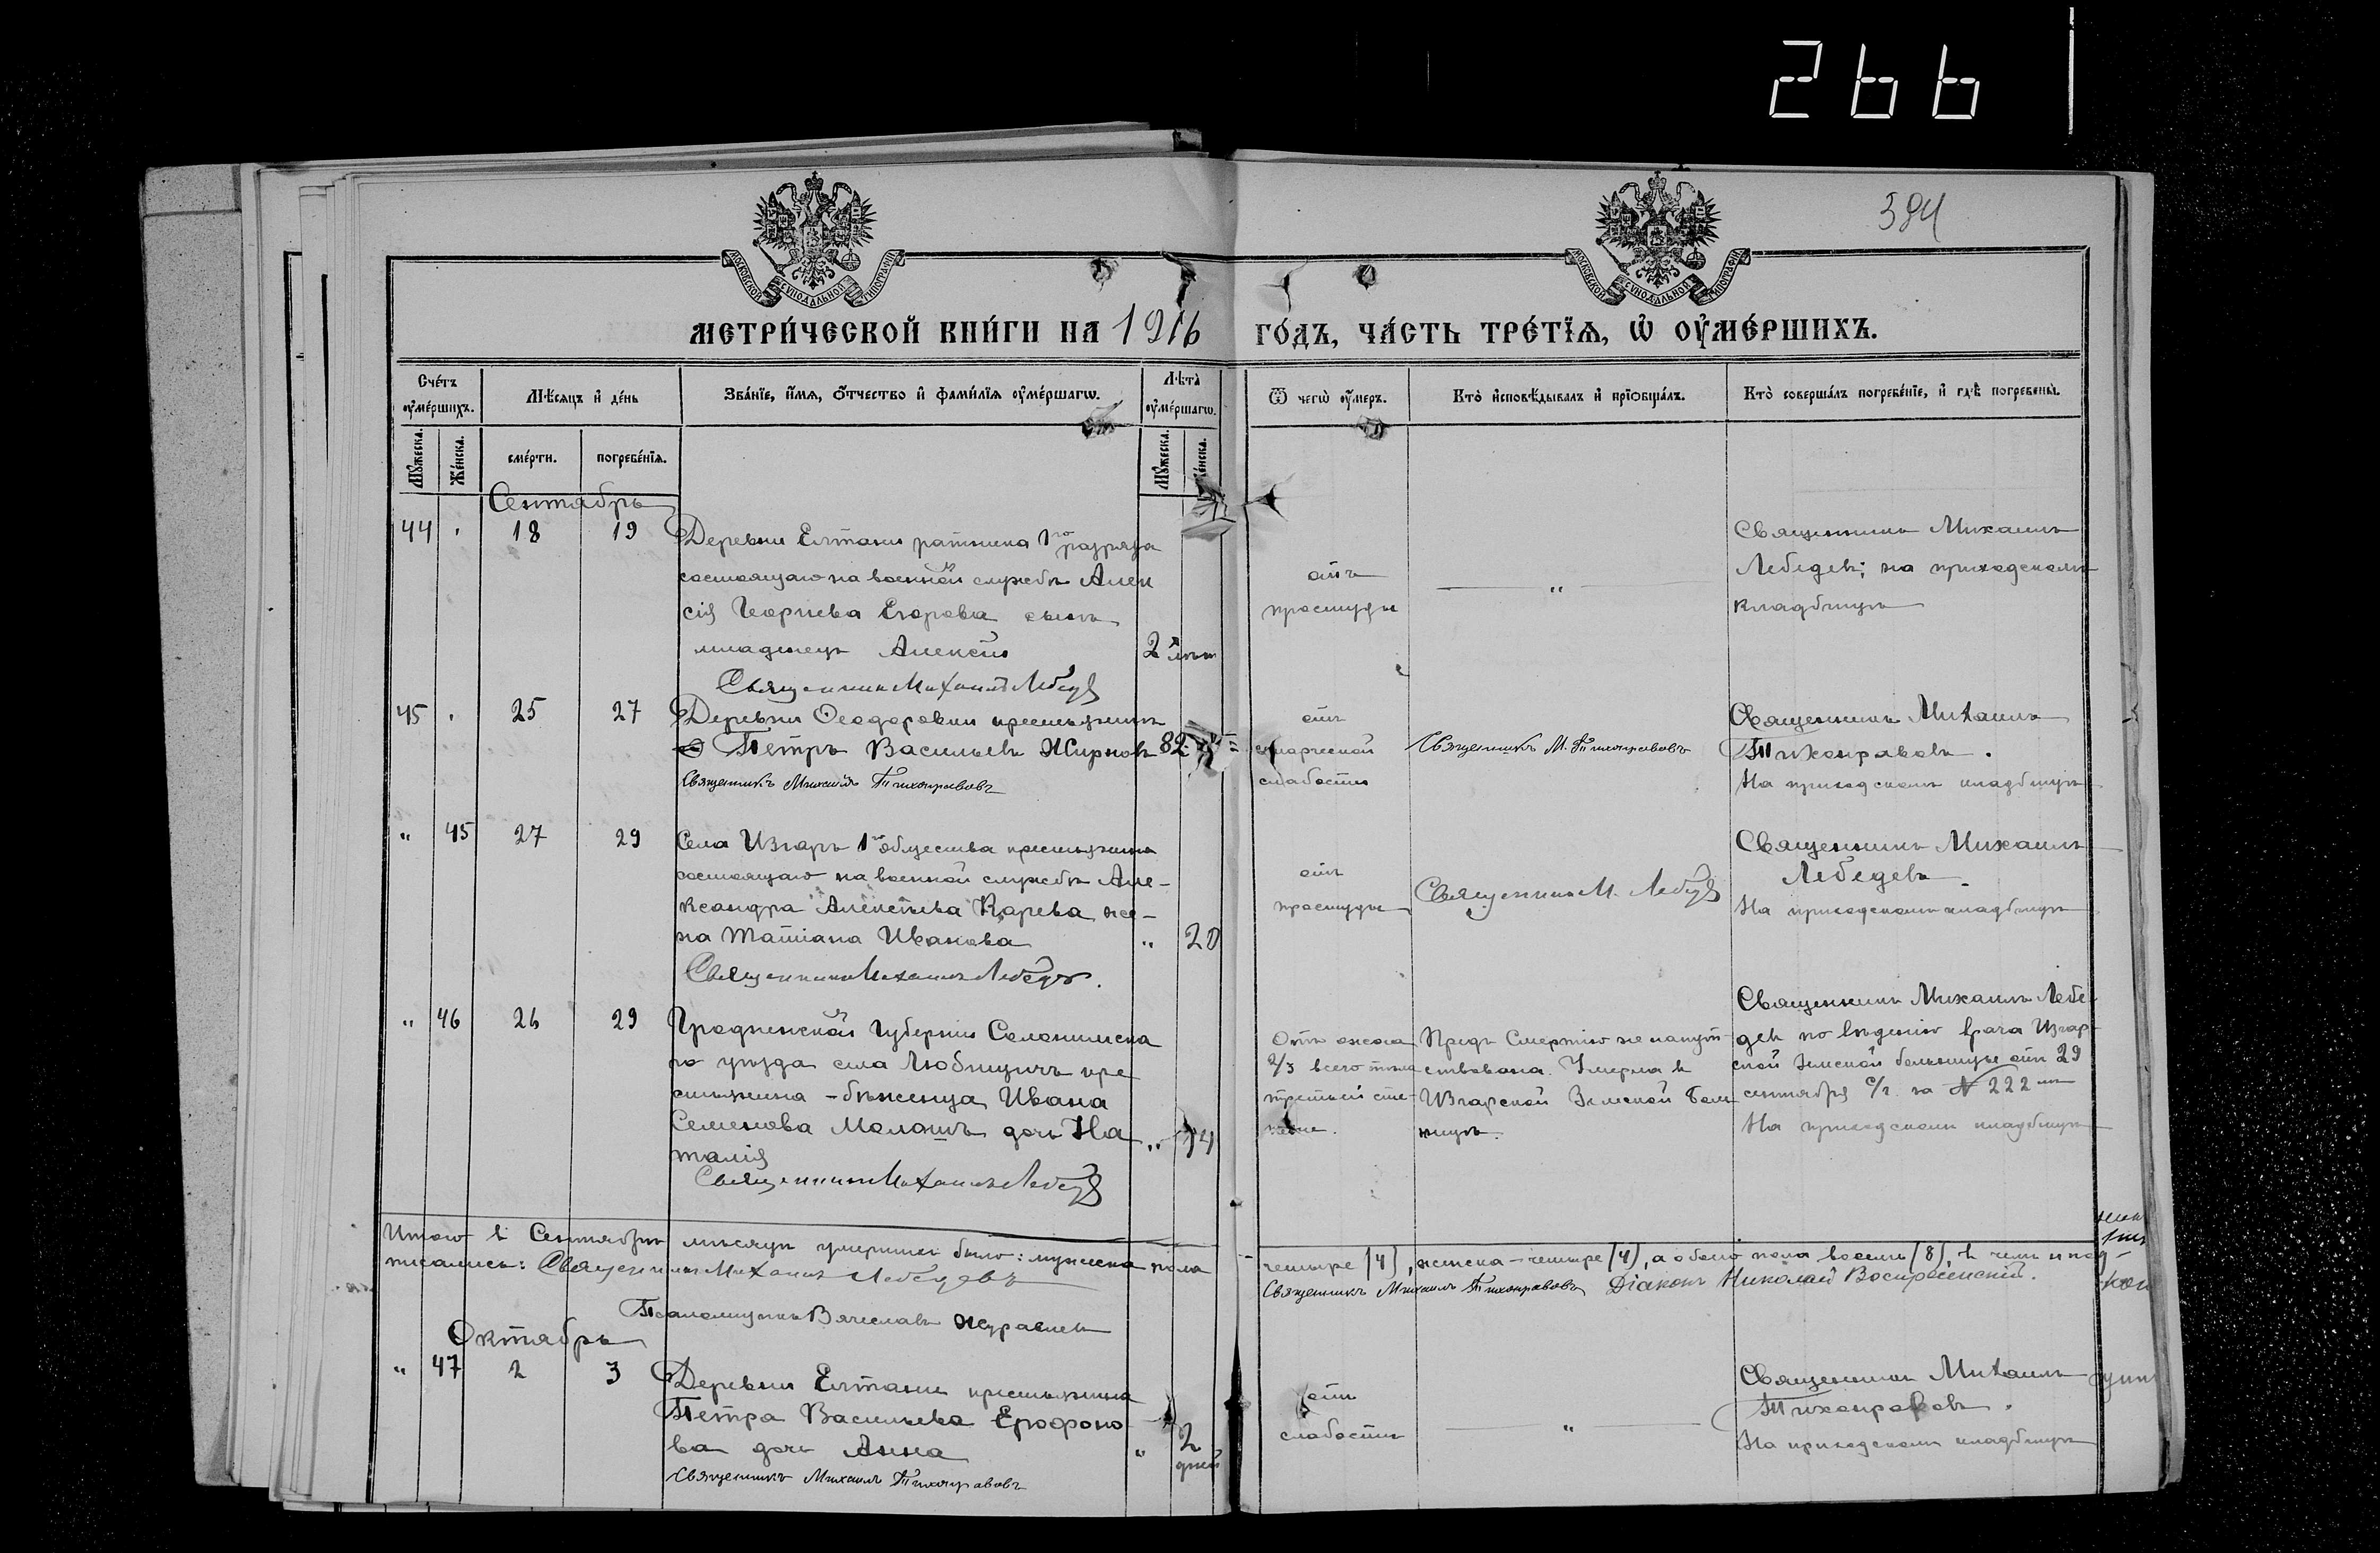 266
384
МОСКОВСКОЙ СѴНОДАЛЬНОЙ ТИПОГРАФІИ
МОСКОВСКОЙ СѴНОДАЛЬНОЙ ТИПОГРАФІИ
МЕТРИ́ЧЕСКОЙ КНИ́ГИ НА 1916 ГО́ДЪ, ЧА́СТЬ ТРЕ́ТЇѦ, Ѡ҆ ОУ҆МЕ́РШИХЪ.
Сче́тъ оу҆ме́ршихъ.
Мѣ́сяцъ и҆ де́нь
Зва́нїе, и҆́мѧ, ѻ҆́тчество и҆ фами́лїѧ оу҆ме́ршагѡ.
Лѣ́та оу҆ме́ршагѡ.
Ѿ чегѡ̀ оу҆́меръ.
Кто̀ и҆сповѣ́дывалъ и҆ прїѡбща́лъ.
Кто̀ соверша́лъ погребе́нїе, и҆ гдѣ̀ погребены̀.
Мꙋ́жеска.
Же́нска.
сме́рти.
погребе́нїѧ.
Мꙋ́жеска.
Же́нска.
Сентябрь
44 " 18 19
Деревни Елтани ратника 1го разряда
состоящаго на военной службѣ Алек
сія Георгіева Егорова сынъ
младенецъ Алексій
2 лѣтъ
Священникъ Михаилъ Лебедевъ
отъ
простуды
"
Священникъ Михаилъ
Лебедевъ; на приходскомъ
кладбищѣ
45 " 25 27
Деревни Ѳеодоровки крестьянинъ
Петръ Васильевъ Жирновъ
82
Священникъ Михаилъ Тихонравовъ
отъ
старческой
слабости
Священникъ М. Тихонравовъ
Священникъ Михаилъ
Тихонравовъ.
На приходскомъ кладбищѣ
" 45 27 29
Села Изгаръ 1го общества крестьянина
состоящаго на военной службѣ Але-
ксандра Алексѣева Карева же-
на Татіана Иванова
" 20
Священникъ Михаилъ Лебедевъ.
отъ
простуды
Священникъ М. Лебедевъ
Священникъ Михаилъ
Лебедевъ.
На приходскомъ кладбищѣ
" 46 26 29
Гродненской губерніи Слонимска
го уѣзда села Любищичъ кре
стьянина - бѣженца Ивана
Семенова Молошъ дочь На
талія
" 14
Священникъ Михаилъ Лебедевъ
Отъ ожога
2/3 всего тѣла
третьей сте-
пени.
Предъ Смертію не напут-
ствована. Умерла в
Изгарской Земской боль
ницѣ.
Священникъ Михаилъ Лебе-
девъ по вѣденію врача Изгар-
ской Земской больницы отъ 29
сентября с/г. за № 222мъ
На приходскомъ кладбищѣ
Итого в Сентябрѣ мѣсяцѣ умершихъ было: мужеска пола четыре (4), женска - четыре (4), а обоего пола восемь (8), въ чемъ и под-
писались: Священникъ Михаилъ Лебедевъ Священникъ Михаилъ Тихонравовъ Діаконъ Николай Воскресенскій.
Псаломщикъ Вячеславъ Журавлевъ
Октябрь
" 47 2 3
Деревни Елтани крестьянина
Петра Васильева Ерофѣо
ва дочь Анна
" 2
дней
Священникъ Михаилъ Тихонравовъ
отъ
слабости
"
Священникъ Михаилъ
Тихонравовъ.
На приходскомъ кладбищѣ